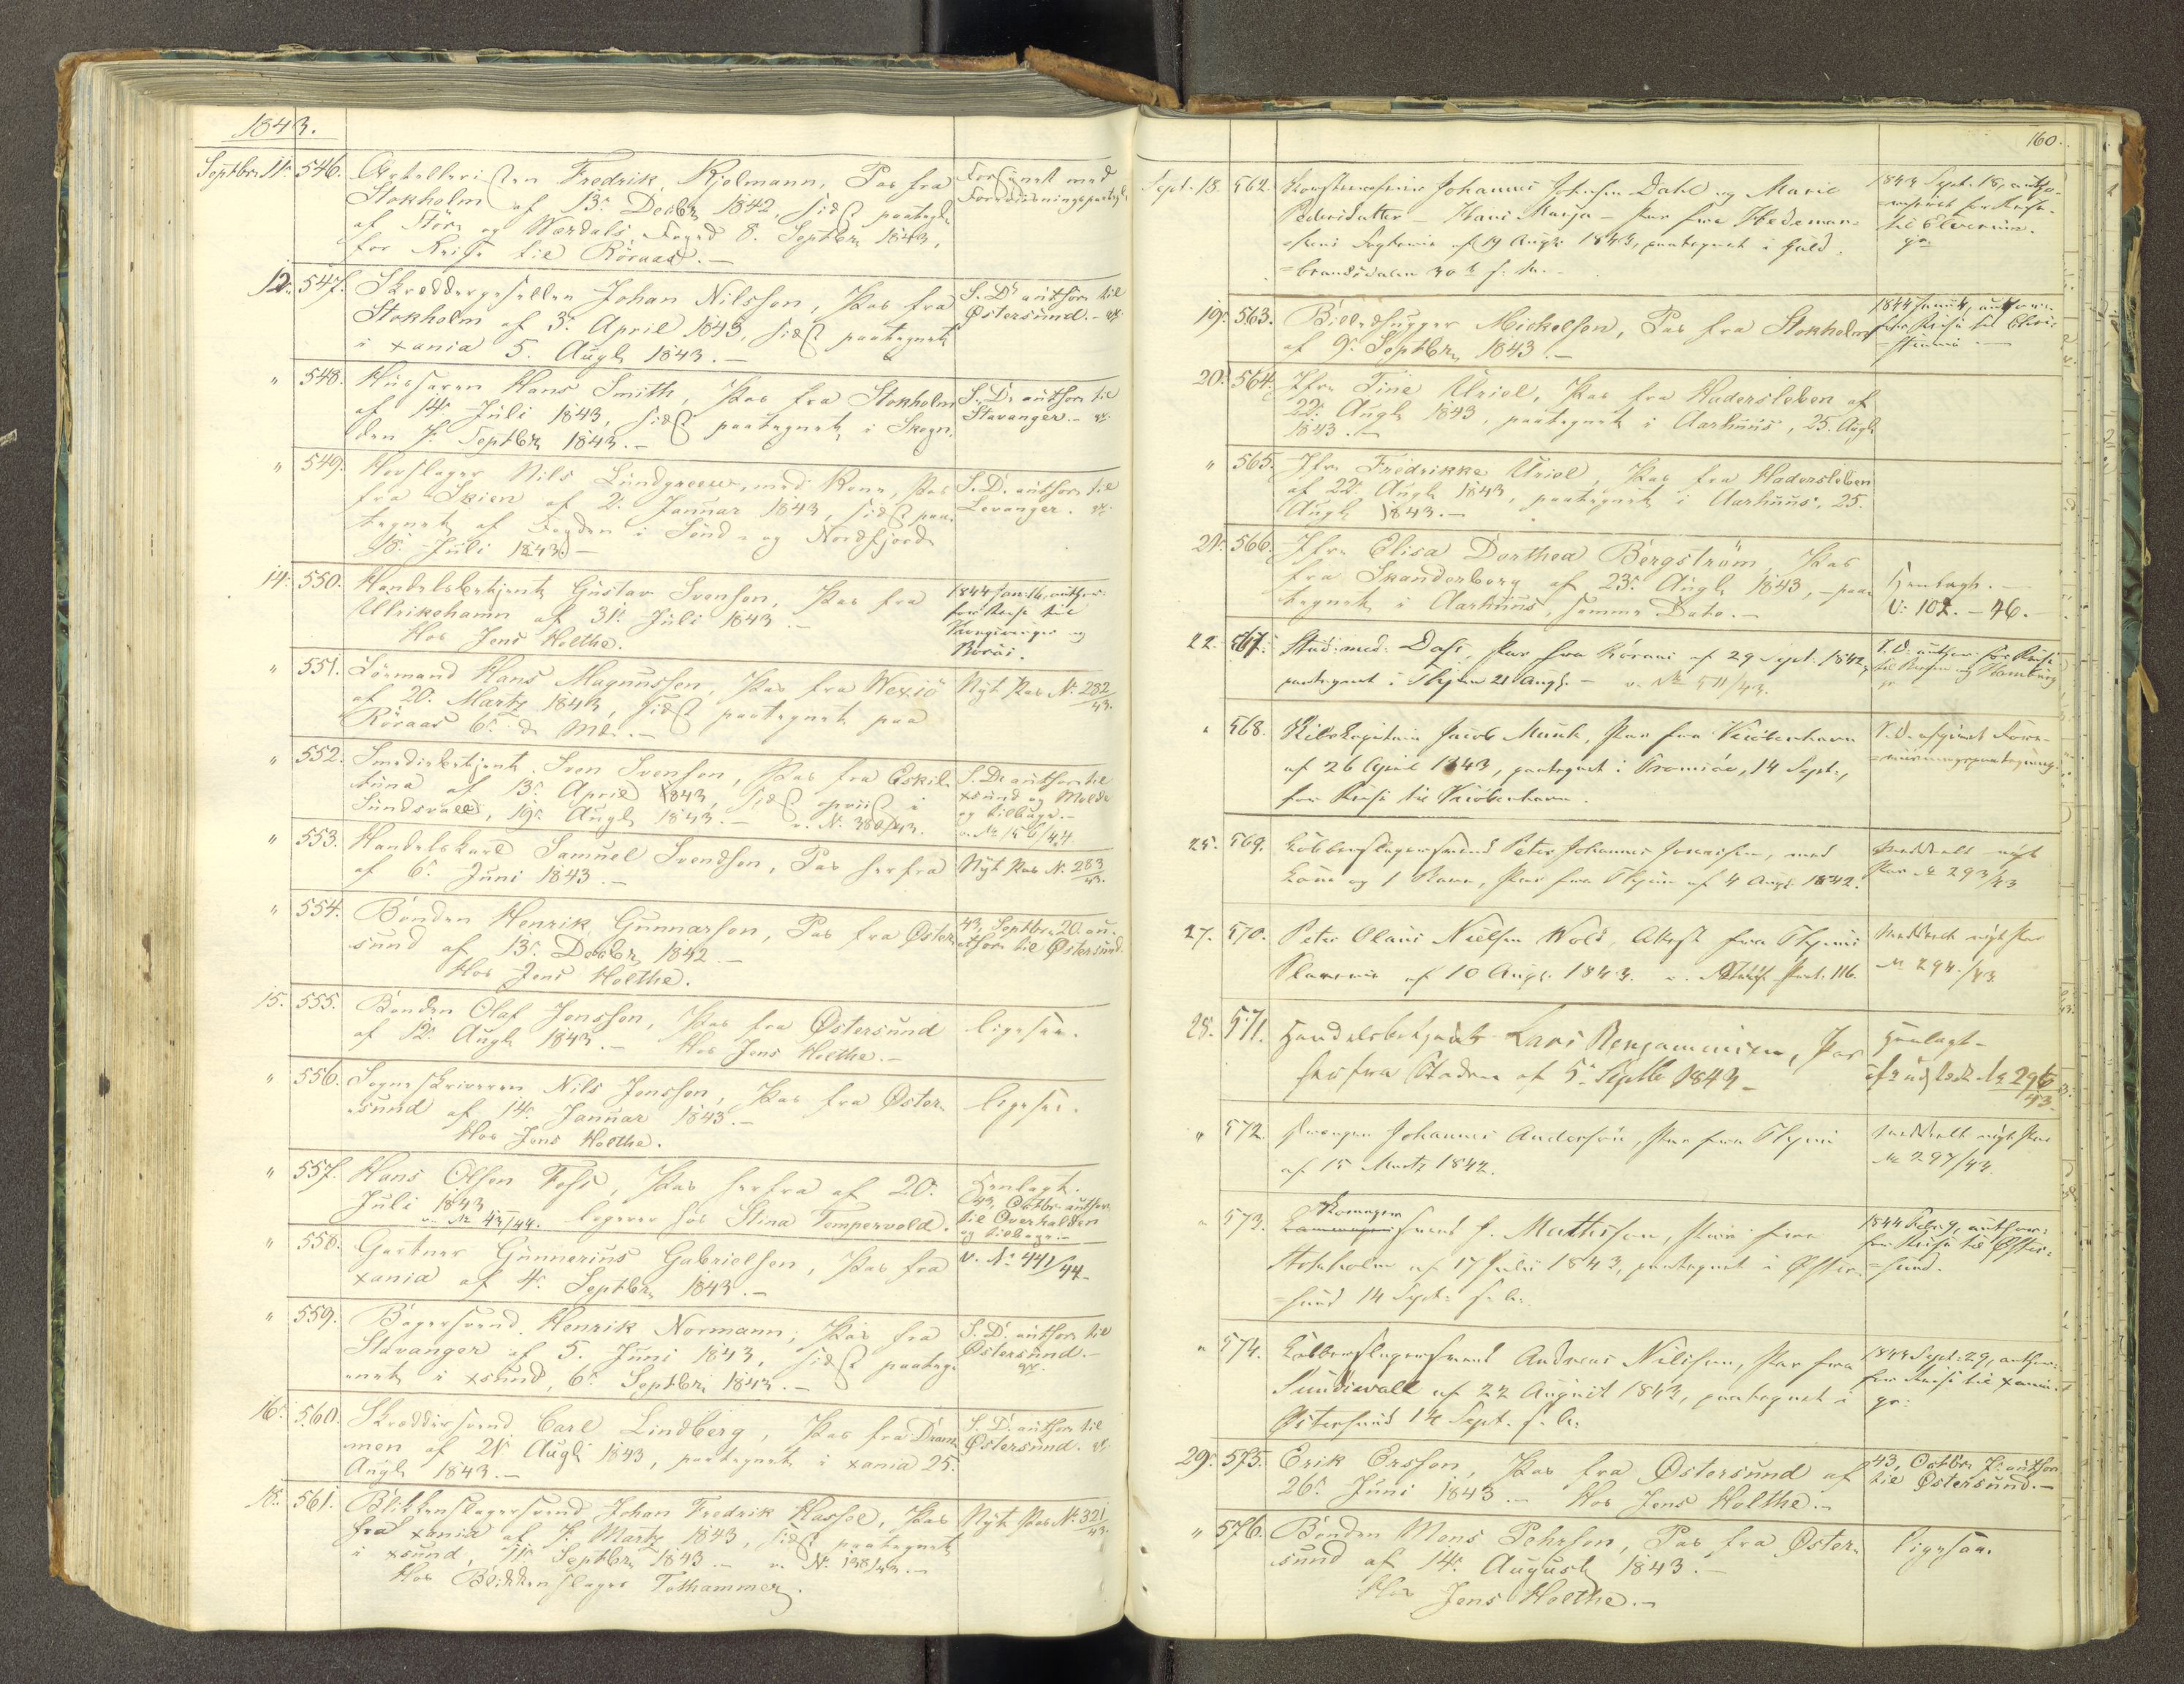 1843.
Septbr. 11. 546. Artelleristen Fredrik Kjelmann, Pas fra
Stokholm af 13. Decbr. 1842, sidst paategnet
af Stør- og Værdals Fogd 8. Septbr. 1843,
for Reise til Röraas. —
Forsynet med
12. 547. Skreddergesellen Johan Nilsson, Pas fra
Stokholm af 3. April 1843, sidst paategnet
i xania 5. Augl. 1843. —
S. D. author. til
Østersund. —
" 548. Hussaren Hans Smith, Pas fra Stokholm
af 14. Juli 1843, sidst paategnet i Skogn,
den 7. Septbr. 1843. —
S. D. author. til
Stavanger. —
" 549. Hovslager Nils Lundgreen, med Kone, Pas
fra Skien af 2. Januar 1843, sidst paa-
tegnet af Fogden i Sönd- og Nordfjord
18. Juli 1843. —
S. D. author. til
Levanger.
14. 550. Handelsbetjent Gustav Svensen, Pas fra
Ulrikehamn af 31. Juli 1843. —
Hos Jens Holthe.
1844 Jan. 16, author.
for Reise til
Kongsvinger og
" 551. Hans Magnussen, Pas fra Wexiö
af 20. Martz 1843, sidst paategnet paa
Röraas 6. d. Md. —
Nyt Pas N. 282/43.
" 552. Smediebetjent Sven Svensen, Pas fra Eskil-
tuna af 13. April 1843, sidst opviist i
Sundsvall, 19. Augl. 1843. — v. N. 380/43.
S. D. author. til
xsund og Molde
og tilbage. —
v. No 156/44
" 553. Handelskarl Samuel Svendsen, Pas herfra
af 6. Juni 1843. —
Nyt Pas N. 283/43.
" 554. Bonden Henrik Gunnarsen, Pas fra Øster-
sund af 13. Decbr. 1842. —
Hos Jens Holthe.
43, Septbr. 20. au-
thor. til Østersund.
15. 555. Bonden Olaf Jonssen, Pas fra Østersund
af 12. Augl. 1843. — Hos Jens Holthe. —
ligesaa.
" 556. Sogneskriveren Nils Jonssen, Pas fra Øster-
sund af 14. Januar 1843. —
Hos Jens Holthe.
ligesaa.
" 557. Hans Olsen Foss, Pas herfra af 20.
Juli 1843
v. No 43/44. logerer hos Stina Tempervold.
Henlagt.
43, Octbr. author.
til Overhalden
og tilbage. —
" 558. Gartner Gunnerius Gabrielsen, Pas fra
xania af 4. Septbr. 1843. —
v. No 441/44
" 559. Bagersvend Henrik Normann, Pas fra
Stavanger af 5. Juni 1843, sidst paateg-
net i xsund, 6. Septbr. 1843. —
S. D. author. til
Østersund. —
16. 560. Skræddersvend Carl Lindberg, Pas fra Dram-
men af 21. Augl. 1843, paategnet i xania 25.
Augl. 1843. —
S. D. author. til
Østersund.
18. 561. Blikkenslagersvend Johan Fredrik Hassel, Pas
fra xania af 7. Martz 1843, sidst paategnet
i xsund, 11. Septbr. 1843. — v. N. 138/43. —
Hos Blikkenslager Tothammer.
Nyt Pas N. 321/43.
160.
Sept. 18. 562. Johannes Johnsen Dahl og Marie
Pedersdatter — Hans Marja — Pas fra Hedemar-
kens Fogderie af 19 Augl. 1843, paategnet i Guld-
brandsdalen 30. s. M. —
1843 Sept. 18, autho-
riseret for Reise
til Elverum.
19. 563. Billedhugger Mickelsen, Pas fra Stokholm
af 9. Septbr. 1843. —
20. 564. Jfr. Tine Uriel, Pas fra Hadersleben af
22. Augl. 1843, paategnet i Aarhuus, 25. Augl.
1843. —
" 565. Jfr. Fredrikke Uriel, Pas fra Hadersleben
af 22. Augl. 1843, paategnet i Aarhuus, 25.
Augl. 1843. —
21. 566. Jfr. Elisa Dorthea Bergström, Pas
fra Skanderborg af 23. Augl. 1843, — paa-
tegnet i Aarhuus, samme Dato. —
Henlagt. —
V. 102. — 46. —
22. 567. Stud. med. Dass, Pas fra Röraas af 29 Sept. 1842,
paategnet i Thjem 21 Augl. — v. No 511/43.
S. D. author. for Reise
til Bergen og Hamburg
" 568. Skibskapitain Jacob Munk, Pas fra Kiöbenhavn
af 26 April 1843, paategnet i Tromsöe, 14 Sept.,
for Reise til Kiöbenhavn.
25. 569. Kobberslagersvend Peter Johannes Jonassen, med
Kone og 1 Barn, Pas fra Thjem af 4 Augl. 1842.
Meddeelt nyt
Pas No 293/43
27. 570. Peter Olaus Nielsen Wold, Attest fra Thjems
af 10 Augl. 1843.
Meddeelt nyt Pas
No 294/43
28. 571. Handelsbetjent Lars Benjaminsen, Pas
fra Staden af 5. Septbr. 1843 —
Henlagt —
" 572. Johannes Andersen, Pas fra Thjem
af 15 Martz 1842.
Meddeelt nyt Pas
No 297/43
" 573. svend P. Mathisson, Pas fra
Stokholm af 17 Juli 1843, paategnet i Øster-
sund 14 Sept. s. A.
1844 Febr. 9, author.
for Reise til Øster-
sund.
" 574. Kobberslagersvend Andreas Nilssen, Pas fra
Sundswall af 22 August 1843, paategnet i
Østersund 14 Sept. s. A.
1843 Sept. 29, author.
for Reise til xania
29. 575. Erik Ersson, Pas fra Østersund af
26. Juni 1843. — Hos Jens Holthe. —
43, Octbr. 7. author.
til Østersund. —
" 576. Bonden Mons Pehrson, Pas fra Øster-
sund af 14. August 1843. —
Hos Jens Holthe. —
ligesaa.